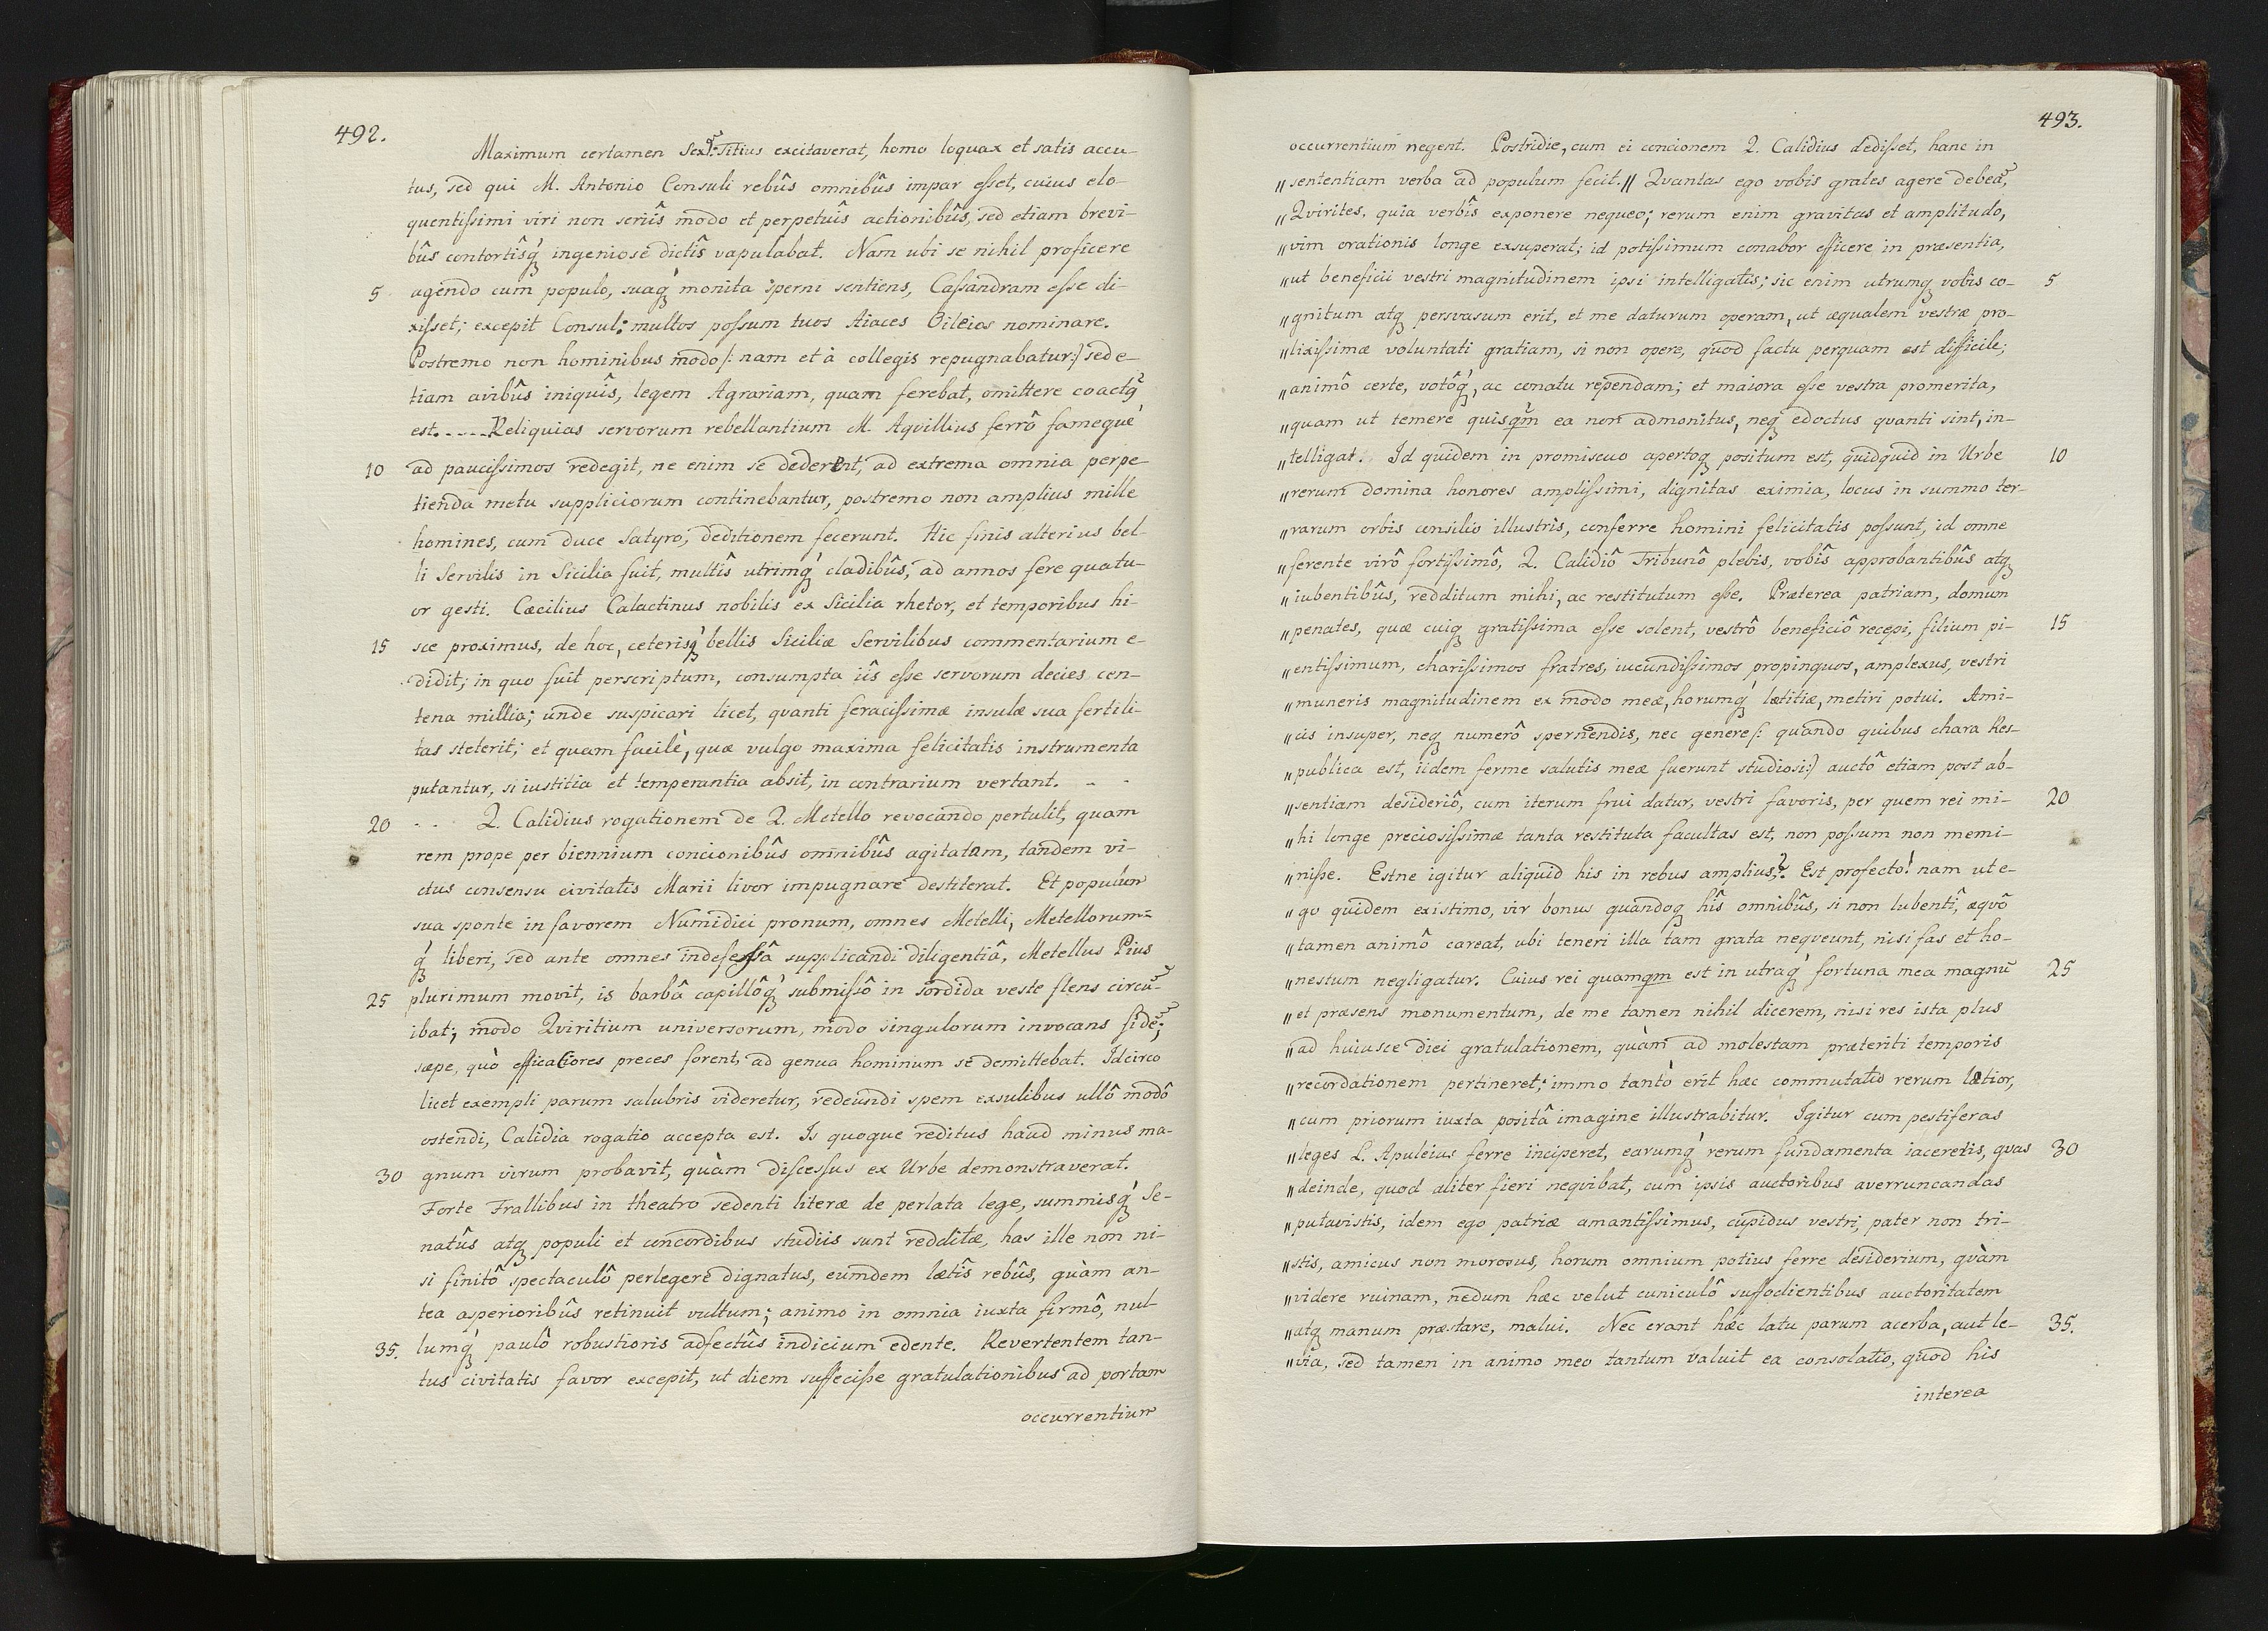 492.
Maximum certamen Sex: Titius excitaverat, homo loquax et satis accu-
tus, sed qui M. Antonio Consuli rebûs omnibûs impar esset, cuius elo-
quentissimi viri non seriîs modo et perpetuîs actionibûs, sed etiam brevi-
bûs contortîsq́ ingeniose dictîs vapulabat. Nam ubi se nihil proficere
5 agendo cum populo, suaq́ monita sperni sentiens, Cassandram esse di-
xisset; excepit Consul: multos possum tuos Aiaces Oileios nominare.
Postremo non hominibus modo /: nam et à collegis repugnabatur:/ sed e-
tiam avibûs iniquîs, legem Agrariam, quam ferebat, omittere coactq̃
est. - - - - Reliquias servorum rebellantium M. Aqvillius ferrô fameque
10 ad paucissimos redegit, ne enim se dederent, ad extrema omnia perpe-
tienda metu suppliciorum continebantur, postremo non amplius mille
homines, cum duce Satyro, deditionem fecerunt. Hic finis alterius bel-
li Servilis in Sicilia fuit, multîs utrimq́ cladibûs, ad annos fere quatu-
or gesti. Cæcilius Calactinus nobilis ex Sicilia rhetor, et temporibus hi-
15 sce proximus, de hoc, ceterisq́ bellis Siciliæ Servilibus commentarium e-
didit; in quo fuit perscriptum, consumpta iîs esse servorum decies cen-
tena millia; unde suspicari licet, qvanti feracissimæ insulæ sua fertili-
tas steterit; et quam facilè, quæ vulgo maxima felicitatis instrumenta
putantur, si iustitia et temperantia absit, in contrarium vertant. - -
20 - - Q. Calidius rogationem de Q. Metello revocando pertulit, quam
rem prope per biennium concionibûs omnibûs agitatam, tandem vi-
ctus consensu civitatis Marii livor impugnare destiterat. Et populum
sua sponte in favorem Numidici pronum, omnes Metelli, Metellorum-
q́ liberi, sed ante omnes indefessâ supplicandi diligentiâ, Metellus Pius
25 plurimum movit, is barbâ capillôq́ submissô in sordida veste flens circũ-
ibat; modo Qviritium universorum, modo singulorum invocans fidẽ;
sæpe, quò efficaciores preces forent, ad genua hominum se demittebat. Idcirco
licet exempli parum salubris videretur, redeundi spem exsulibus ullô modô
ostendi, Calidia rogatio accepta est. Is quoque reditus haud minus ma-
30 gnum virum probavit, quàm discessus ex Urbe demonstraverat.
Forte Trallibus in theatro sedenti literæ de perlata lege, summisq́ Se-
natûs atq́ populi et concordibus studiis sunt redditæ, has ille non ni-
si finitô spectaculô perlegere dignatus, eumdem lætîs rebûs, quàm an-
tea asperioribûs retinuit vultum; animo in omnia iuxta firmô, nul-
35. lumq́ paulô robustioris adfectûs indicium edente. Revertentem tan-
tus civitatis favor excepit, ut diem suffecisse gratulationibus ad portam
occurrentium
493.
occurrentium negent. Postridie, cum ei concionem Q. Calidius dedisset, hanc in
〃sententiam verba ad populum fecit. 〃 Qvantas ego vobis grates agere debeã,
〃Qvirites, quia verbîs exponere nequeo; rerum enim gravitas et amplitudo,
〃vim orationis longe exsuperat; id potissimum conabor efficere in præsentia,
〃ut beneficii vestri magnitudinem ipsi intelligatis; sic enim utrumq́ vobis co- 5
〃gnitum atq́ persvasum erit, et me daturum operam, ut æqualem vestræ pro-
〃lixissimæ voluntati gratiam, si non opere, quod factu perquam est difficile;
〃animô certe, votôq́, ac conatu rependam; et maiora esse vestra promerita,
〃quam ut temere quisqm̃ ea non admonitus, neq́ edoctus qvanti sint, in-
〃telligat. Id quidem in promiscuo apertoq́ positum est, quidquid in Urbe 10
〃rerum domina honores amplissimi, dignitas eximia, locus in summo ter-
〃rarum orbis consilio illustris, conferre homini felicitatis possunt, id omne
〃ferente virô fortissimô, Q. Calidiô Tribunô plebis, vobîs approbantibûs atq́
〃iubentibûs, redditum mihi, ac restitutum esse. Præterea patriam, domum
〃penates, quæ cuiq́ gratissima esse solent, vestrô beneficiô recepi, filium pi- 15
〃entissimum, charissimos fratres, iucundissimos propinquos, amplexus, vestri
〃muneris magnitudinem ex modo meæ, horumq́ lætitiæ, metiri potui. Ami-
〃cis insuper, neq́ numerô spernendis, nec genere /: quando quibus chara Res-
〃publica est, iidem ferme salutis meæ fuerunt studiosi:/ auctô etiam post ab-
〃sentiam desideriô, cum iterum frui datur, vestri favoris, per quem rei mi- 20
〃hi longe preciosissimæ tanta restituta facultas est, non possum non memi-
〃nisse. Estne igitur aliquid his in rebus amplius? Est profecto! nam ut e-
〃go quidem existimo, vir bonus quandoq́ hîs omnibûs, si non lubentî, æqvô
〃tamen animô careat, ubi teneri illa tam grata neqveunt, nisi fas et ho-
〃nestum negligatur. Cuius rei quamqm est in utraq́ fortuna mea magnũ 25
〃et præsens monumentum, de me tamen nihil dicerem, nisi res ista plus
〃ad huiusce diei gratulationem, quàm ad molestam præteriti temporis
〃recordationem pertineret; immo tantò erit hæc commutatio rerum lætior,
〃cum priorum iuxta positâ imagine illustrabitur. Igitur cum pestiferas
〃leges L. Apuleius ferre inciperet, earumq́ rerum fundamenta iacereris, qvas 30
〃deinde, quod aliter fieri neqvibat, cum ipsis auctoribus averruncandas
〃putavistis, idem ego patriæ amantissimus, cupidus vestri, pater non tri-
〃stis, amicus non morosus, horum omnium potius ferre desiderium, qvàm
〃videre ruinam, nedum hæc velut cuniculô suffodientibus auctoritatem
〃atq́ manum præstare, malui. Nec erant hæc latu parum acerba, aut le- 35.
〃via, sed tamen in animo meo tantum valuit ea consolatio, quod his
interea